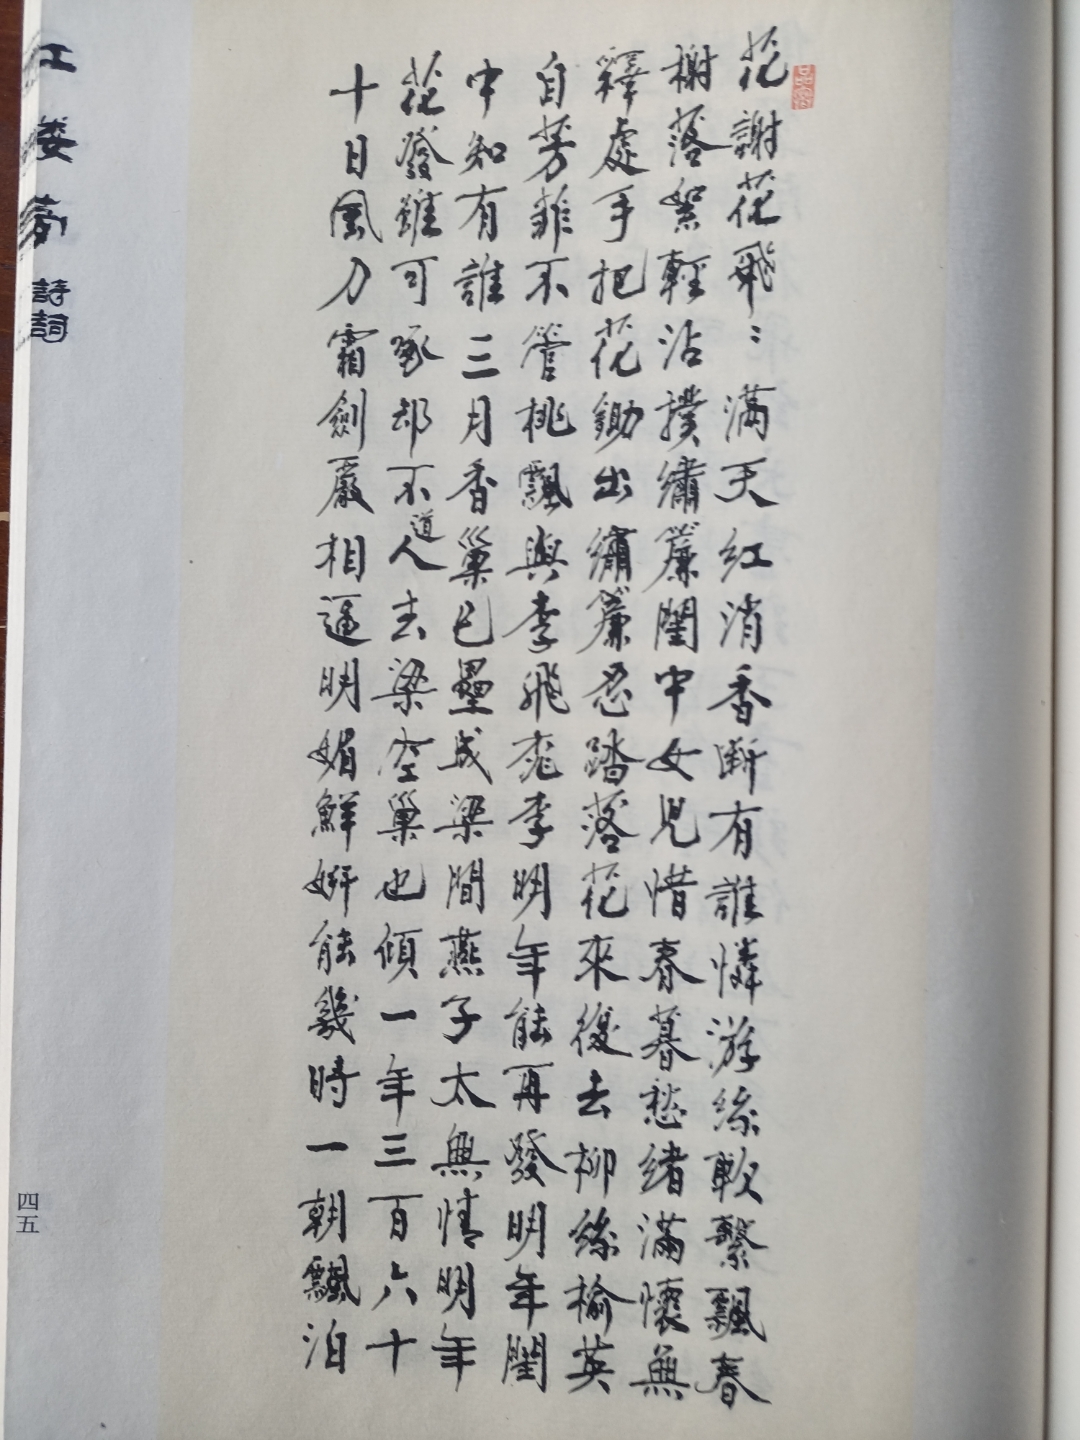 花謝花飛〻滿天紅消香斷有誰憐游絲軟繫飄春
榭落絮輕沾撲繡簾閨中女兒惜春暮愁緒滿懷無
釋處手把花鋤出繡簾忍踏落花來復去柳絲榆英
自芳菲不管桃飄與李飛桃李明年能再發明年閨
中知有誰三月香巢已壘成梁間燕子太無情明年
花發雖可啄却不道人去梁空巢也傾一年三百六十
十日風刀霜劍嚴相逼明媚鮮妍能幾時一朝飄泊
红楼梦
詩詞
四五